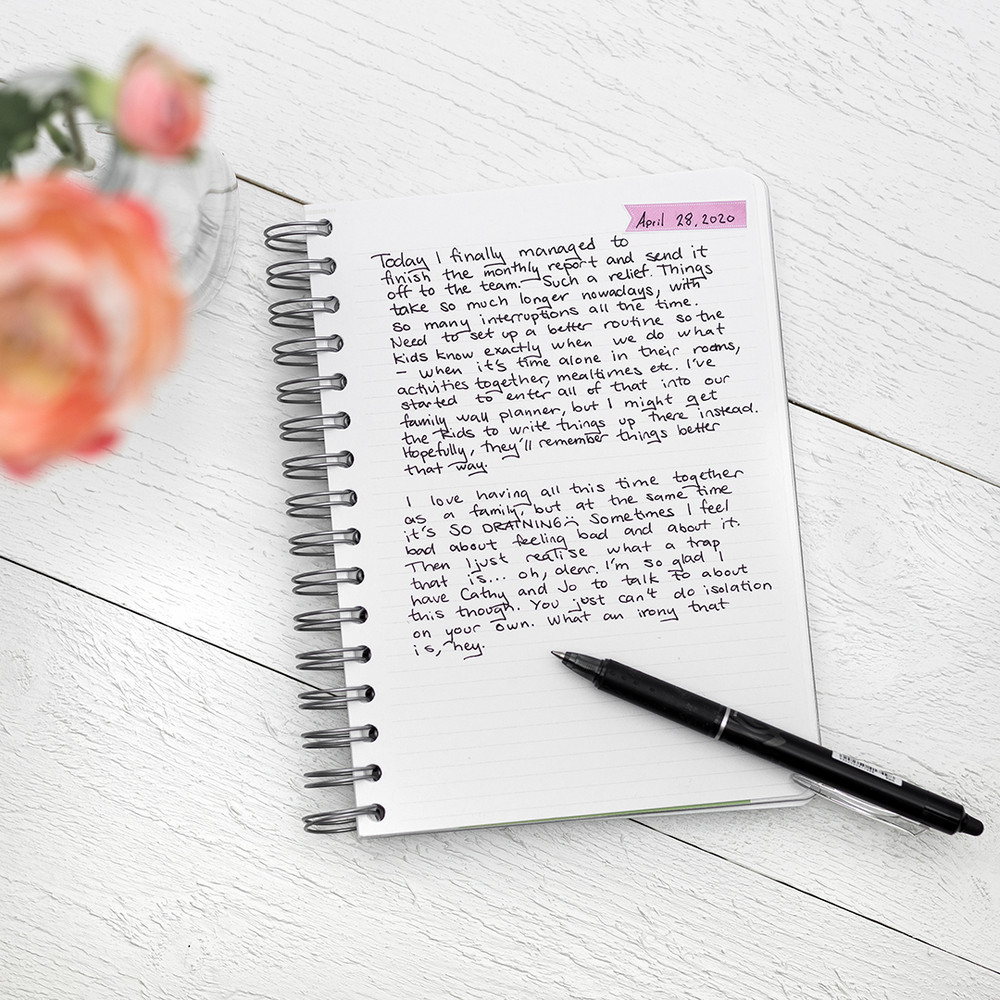 April 28, 2020
Today I finally managed to
finish the monthly report and send it
off to the team. Such a relief. Things
take so much longer nowadays, with
so many interruptions all the time.
Need to set up a better routine so the
kids know exactly when we do what
– when it's time alone in their rooms,
activities together, mealtimes etc. I've
started to enter all of that into our
family wall planner, but I might get
the kids to write things up there instead.
Hopefully, they'll remember things better
that way.
I love having all this time together
as a family, but at the same time
it's SO DRAINING :( Sometimes I feel
bad about feeling bad and about it.
Then I just realise what a trap
that is... oh, dear. I'm so glad I
have Cathy and Jo to talk to about
this though. You just can't do isolation
on your own. What an irony that
is, hey.